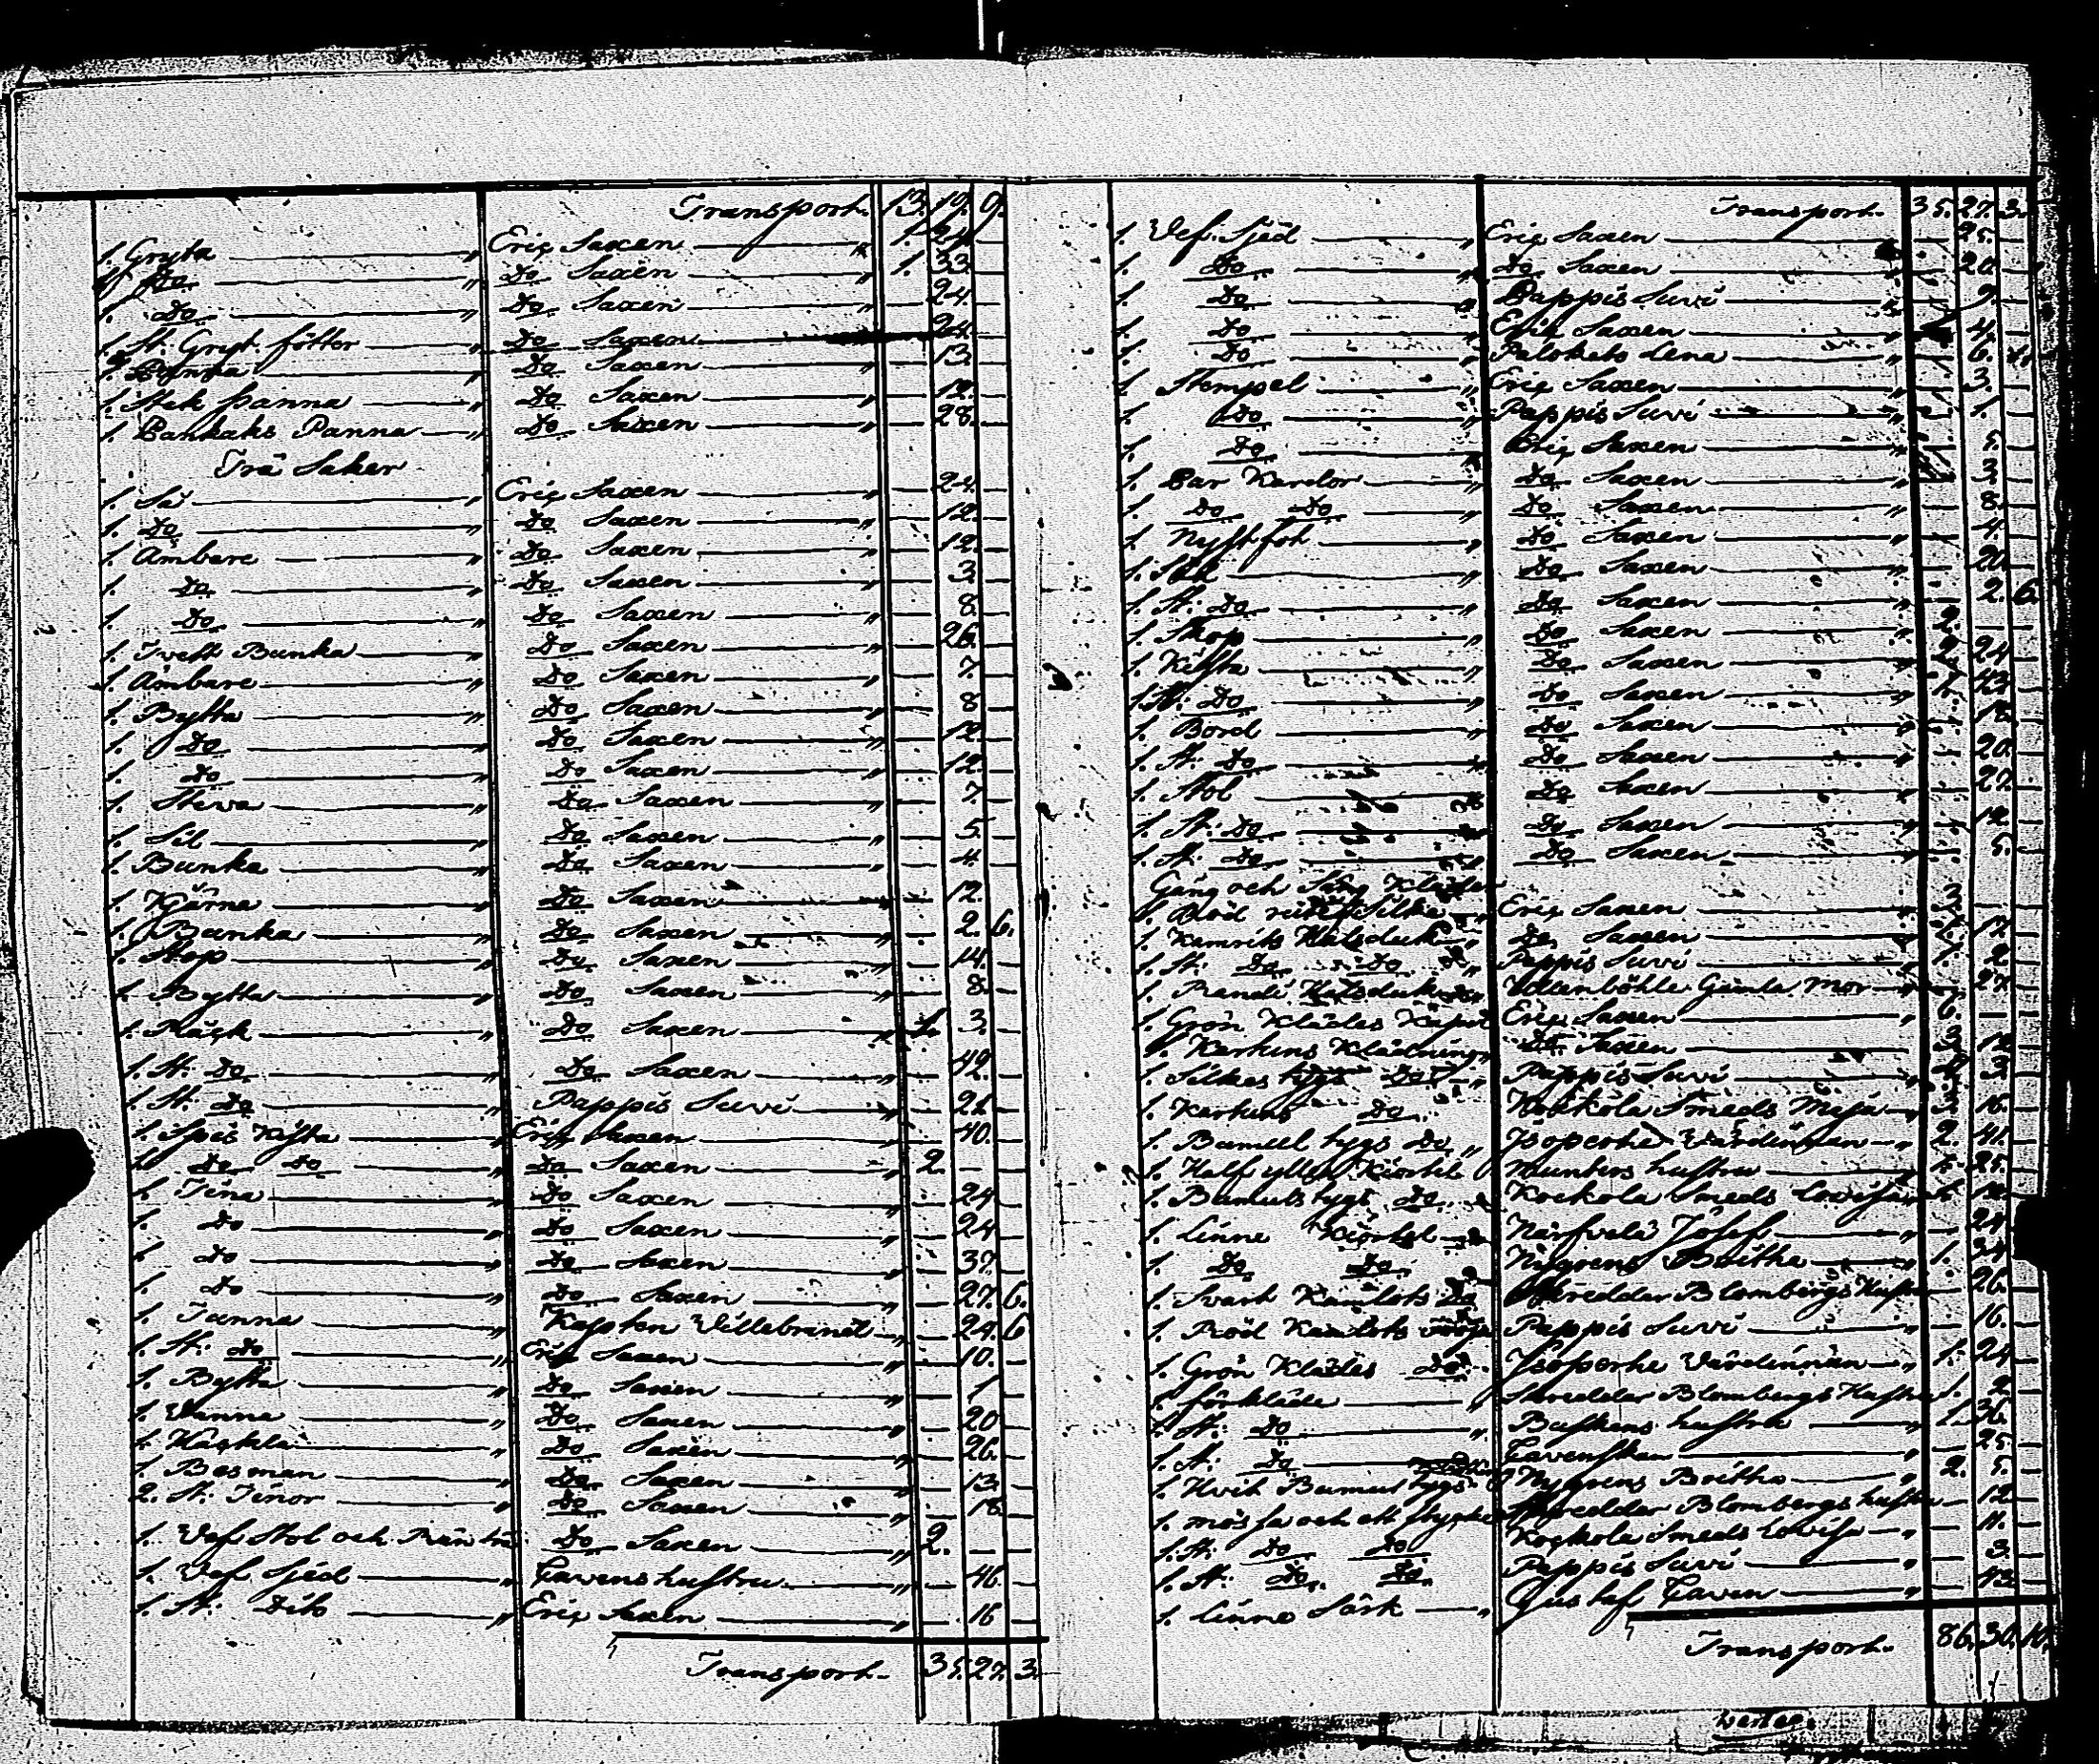 Transport. 13. 19. 9.
1. Gryta " Eriq Saxen " 1. 24. —
1. Do " Do Saxen " 1. 33. —
1. Do " Do Saxen " — 24. —
1. St: Gryt. fötter " Do Saxen — 24. —
1. Panna " Do Saxen " — 13. —
1. Stek panna " Do Saxen " — 12. —
1. Pankaks Panna " Do Saxen " — 28. —
Trä Saker
1. Så " Eriq Saxen " — 24. —
1. Do " Do Saxen " — 12. —
1. Ambare " Do Saxen " — 12. —
1. Do " Do Saxen " — 3. —
1. Do " Do Saxen " — 8. —
1. Tvett Bunka " Do Saxen " — 26. —
1. Ämbare " Do Saxen " — 7. —
1. Bytta " Do Saxen " — 8 —
1. Do " Do Saxen " — 12. —
1. Do " Do Saxen " — 12. —
1. Steva " Do Saxen " — 7. —
1. Sil " Do Saxen " — 5. —
1. Bunka " Do Saxen " — 4. —
1. Kjärna " Do Saxen " — 12. —
1. Bunka " Do Saxen " — 2. 6.
1. Stop " Do Saxen " — 14. —
1. Bytta " Do Saxen " — 8. —
1. Räck " Do Saxen " 1. 3. —
1. St: Do " Do Saxen " — 42. —
1. St: Do " Pappis Suvi " — 21 —
1. Spis Kista " Eriq Saxen " — 40. —
1. Do Do " Do Saxen " 2. — —
1. Tina " Do Saxen " — 24 —
1. Do " Do Saxen " — 24 —
1. Do " Do Saxen " — 37. —
1. Do " Do Saxen " — 27. 6.
1. Tunna " Kapten Villebrandt " — 24. 6
1. St: Do " Eriq Saxen " — 10. —
1. Bytta " Do Saxen " — 1 —
1. Vanna " Do Saxen " — 20 —
1. " Do Saxen " — 26. —
1. Besman " Do Saxen " — 13. —
2. St: Tinor " Do Saxen " — 18. —
1. Vef Stol och Do Saxen " 2. — —
1. Vef Sjed " Tavens hustru " — 46. —
1. St: Dito " Eriq Saxen " — 16 —
Transport. 35. 27. 3.
Transport. 35. 27. 3.
1. Vef. Sjed " Eriq Saxen — 25. —
1. Do " Do Saxen — 20. —
1. Do " Pappis Suvi — 9. —
1. Do " Erik Saxen " — 4. —
1. Do " Lena " — 6.
1. Stempel " Eriq Saxen " — 3. —
1. Do " Pappis Suvi " — 1. —
1. Do " Eriq Saxen " — 5. —
1. Par Kardor " Do Saxen " — 3. —
1. Do Do " Do Saxen " — 8. —
1. Nystfot " Do Saxen " — 4. —
1. " Do Saxen " — 20. —
1. St: Do " Do Saxen " — 2. 6.
1. Skap " Do Saxen " 2. — —
1. Kista " Do Saxen " 2. 24 —
1. St. Do " Do Saxen " 43. —
1. Bord " Do Saxen " — 18. —
1. St: Do " Do Saxen " — 20. —
1. Stol " Do Saxen " — 27. —
1. St: Do " Do Saxen " — 12 —
1. St: Do " Do Saxen " — 5. —
Gång och Säng Kläder
1. Silke " Eriq Saxen " 3. — —
1. Kamriks Halsduk " Do Saxen " 12 —
1. St: Do Do " Pappis Suvi " 2 —
1. Halsduk Gamla Mor " — 27 —
1. Grön Klädes Eriq Saxen " 6. — —
1. Kartuns Klädning " Do Saxen 3. 12 —
1. Silkes tygs Do " Pappis Suvi " 3 —
1. Kartuns Do Smeds Maja " 16. —
1. Bumull tygs Do " Värdinnan " 2. 41. —
1. Half ylle Kiortel hustru " 1. 25. —
1. Bumuls tygs Do " Kockola Smeds Lovisa
1. Linne Kiortel " Josef " — 24 —
1. Do Do " Nygrens Britha " 1. 34 —
1. Svart Kamlots Do Skreddar Blombergs Hustru — 26. —
1. Röd Kamlots tröja Pappis Suvi " — 16. —
1. Grön Klädes Do " Värdinnan " 1. 24 —
1. förkläde " Skreddar Blombergs Hustru 1. 2. —
1. St: Do " hustru " 1. 36. —
1. St: Do " Tavenskan " — 25. —
1. Hvit Bumuls tygs Nygrens Britha " 2. 5. —
1. mössa och ett stycke Skreddar Blombergs hustru — 12. —
1. St: Do Do Kockola Smeds Lovisa " — 11. —
1. St: Do Do Pappis Suvi " — 3. —
1. Linne Särk " Gustaf Taven " — 43. —
Transport. 86. 30. 10.